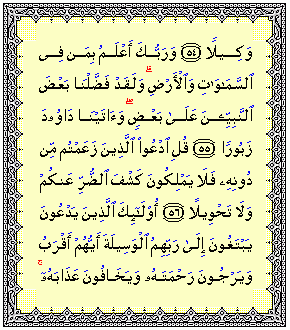 وَكِيلًا ۝٥٤ وَرَبُّكَ أَعْلَمُ بِمَن فِى
ٱلسَّمَٰوَٰتِ وَٱلْأَرْضِ ۗ وَلَقَدْ فَضَّلْنَا بَعْضَ
ٱلنَّبِيِّۦنَ عَلَىٰ بَعْضٍ ۖ وَءَاتَيْنَا دَاوُۥدَ
زَبُورًا ۝٥٥ قُلِ ٱدْعُوا۟ ٱلَّذِينَ زَعَمْتُم مِّن
دُونِهِۦ فَلَا يَمْلِكُونَ كَشْفَ ٱلضُّرِّ عَنكُمْ
وَلَا تَحْوِيلًا ۝٥٦ أُو۟لَٰٓئِكَ ٱلَّذِينَ يَدْعُونَ
يَبْتَغُونَ إِلَىٰ رَبِّهِمُ ٱلْوَسِيلَةَ أَيُّهُمْ أَقْرَبُ
وَيَرْجُونَ رَحْمَتَهُۥ وَيَخَافُونَ عَذَابَهُۥٓ ۚ